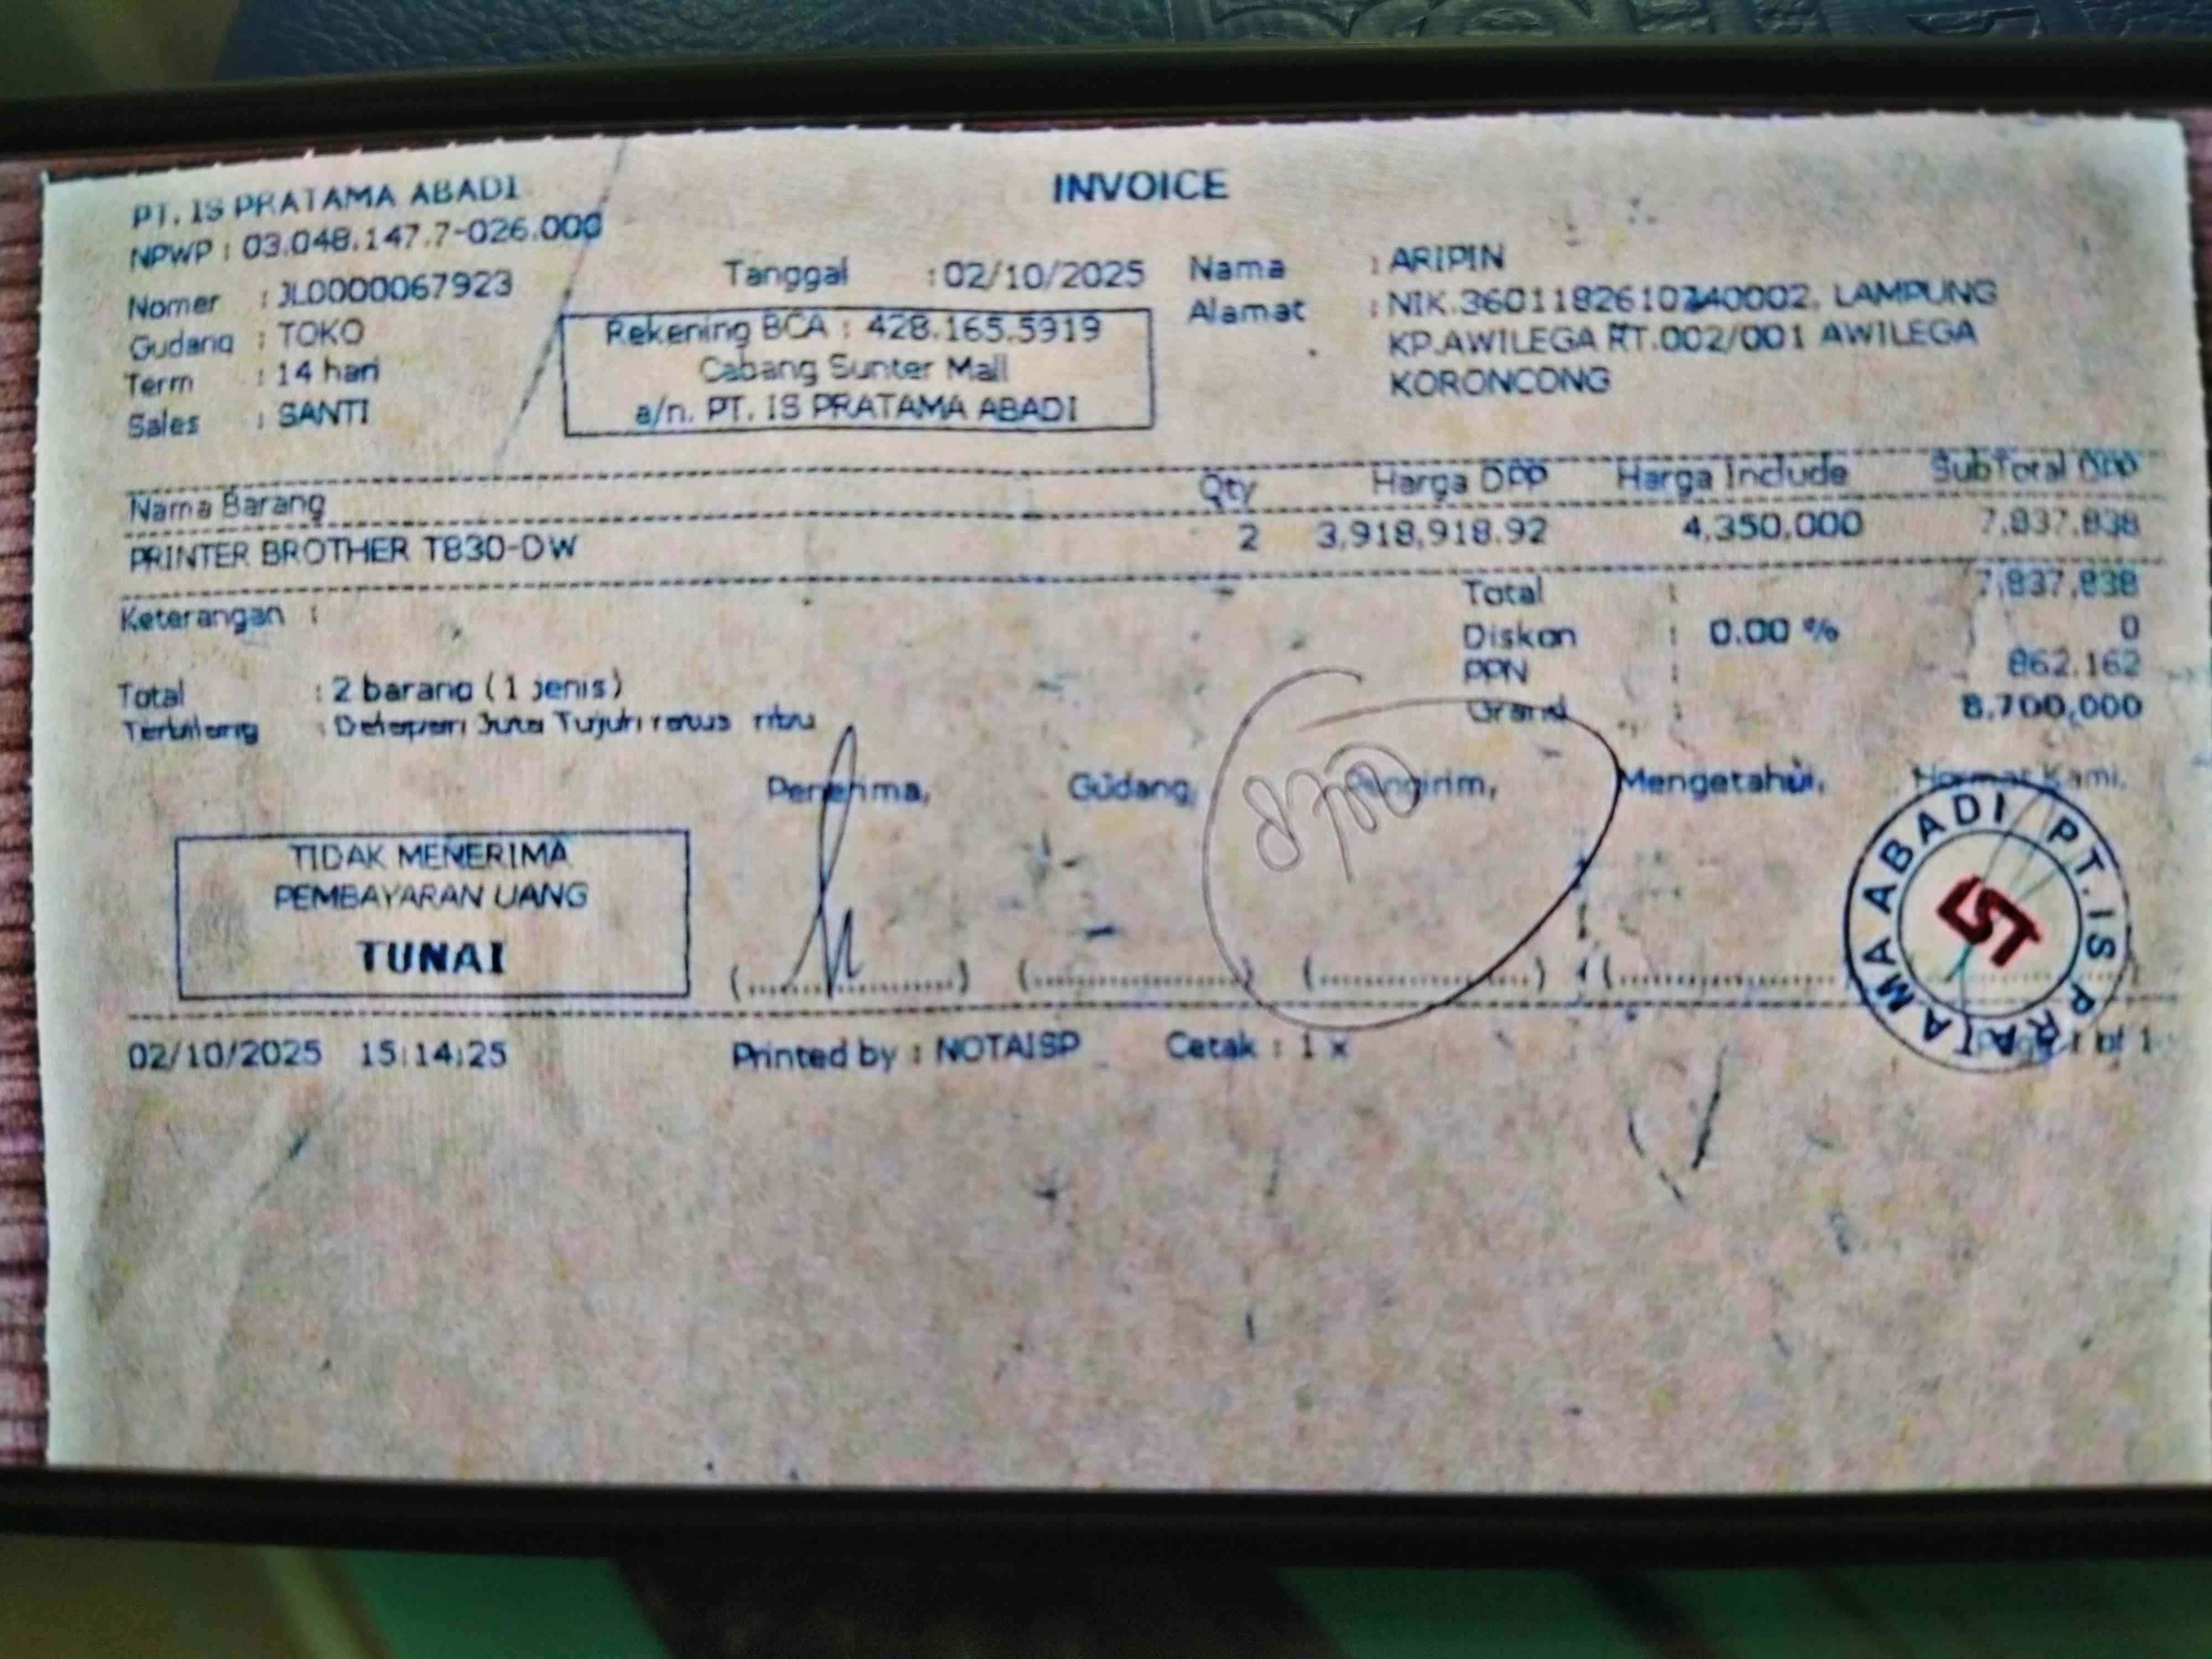 PT. IS PRATAMA ABADI
INVOICE
NPWP : 03.048.147.7-026.000
Nomer : JL0000067923
Gudang : TOKO
Term : 14 hari
Sales : SANTI
Tanggal : 02/10/2025
Rekening BCA : 428.165.5919
Cabang Sunter Mall
a/n. PT. IS PRATAMA ABADI
Nama : ARIPIN
Alamat : LAMPUNG
KP.AWILEGA RT.002/001 AWILEGA
KORONCONG
Nama Barang Qty Harga DPP Harga Include SubTotal DPP
PRINTER BROTHER T830-DW 2 3,918,918.92 4,350,000 7,837,838
Keterangan :
Total : 7,837,838
Diskon : 0.00 % 0
PPN : 862.162
Grand : 8,700,000
Total : 2 barang ( 1 jenis )
Terbilang : Delapan Juta Tujuh ratus ribu
Penerima, Gudang, Pengirim, Mengetahui, Hormat Kami,
8700
TIDAK MENERIMA
PEMBAYARAN UANG
TUNAI
PT. IS PRATAMA ABADI
IST
02/10/2025 15:14:25 Printed by : NOTAISP Cetak : 1 x Page 1 of 1